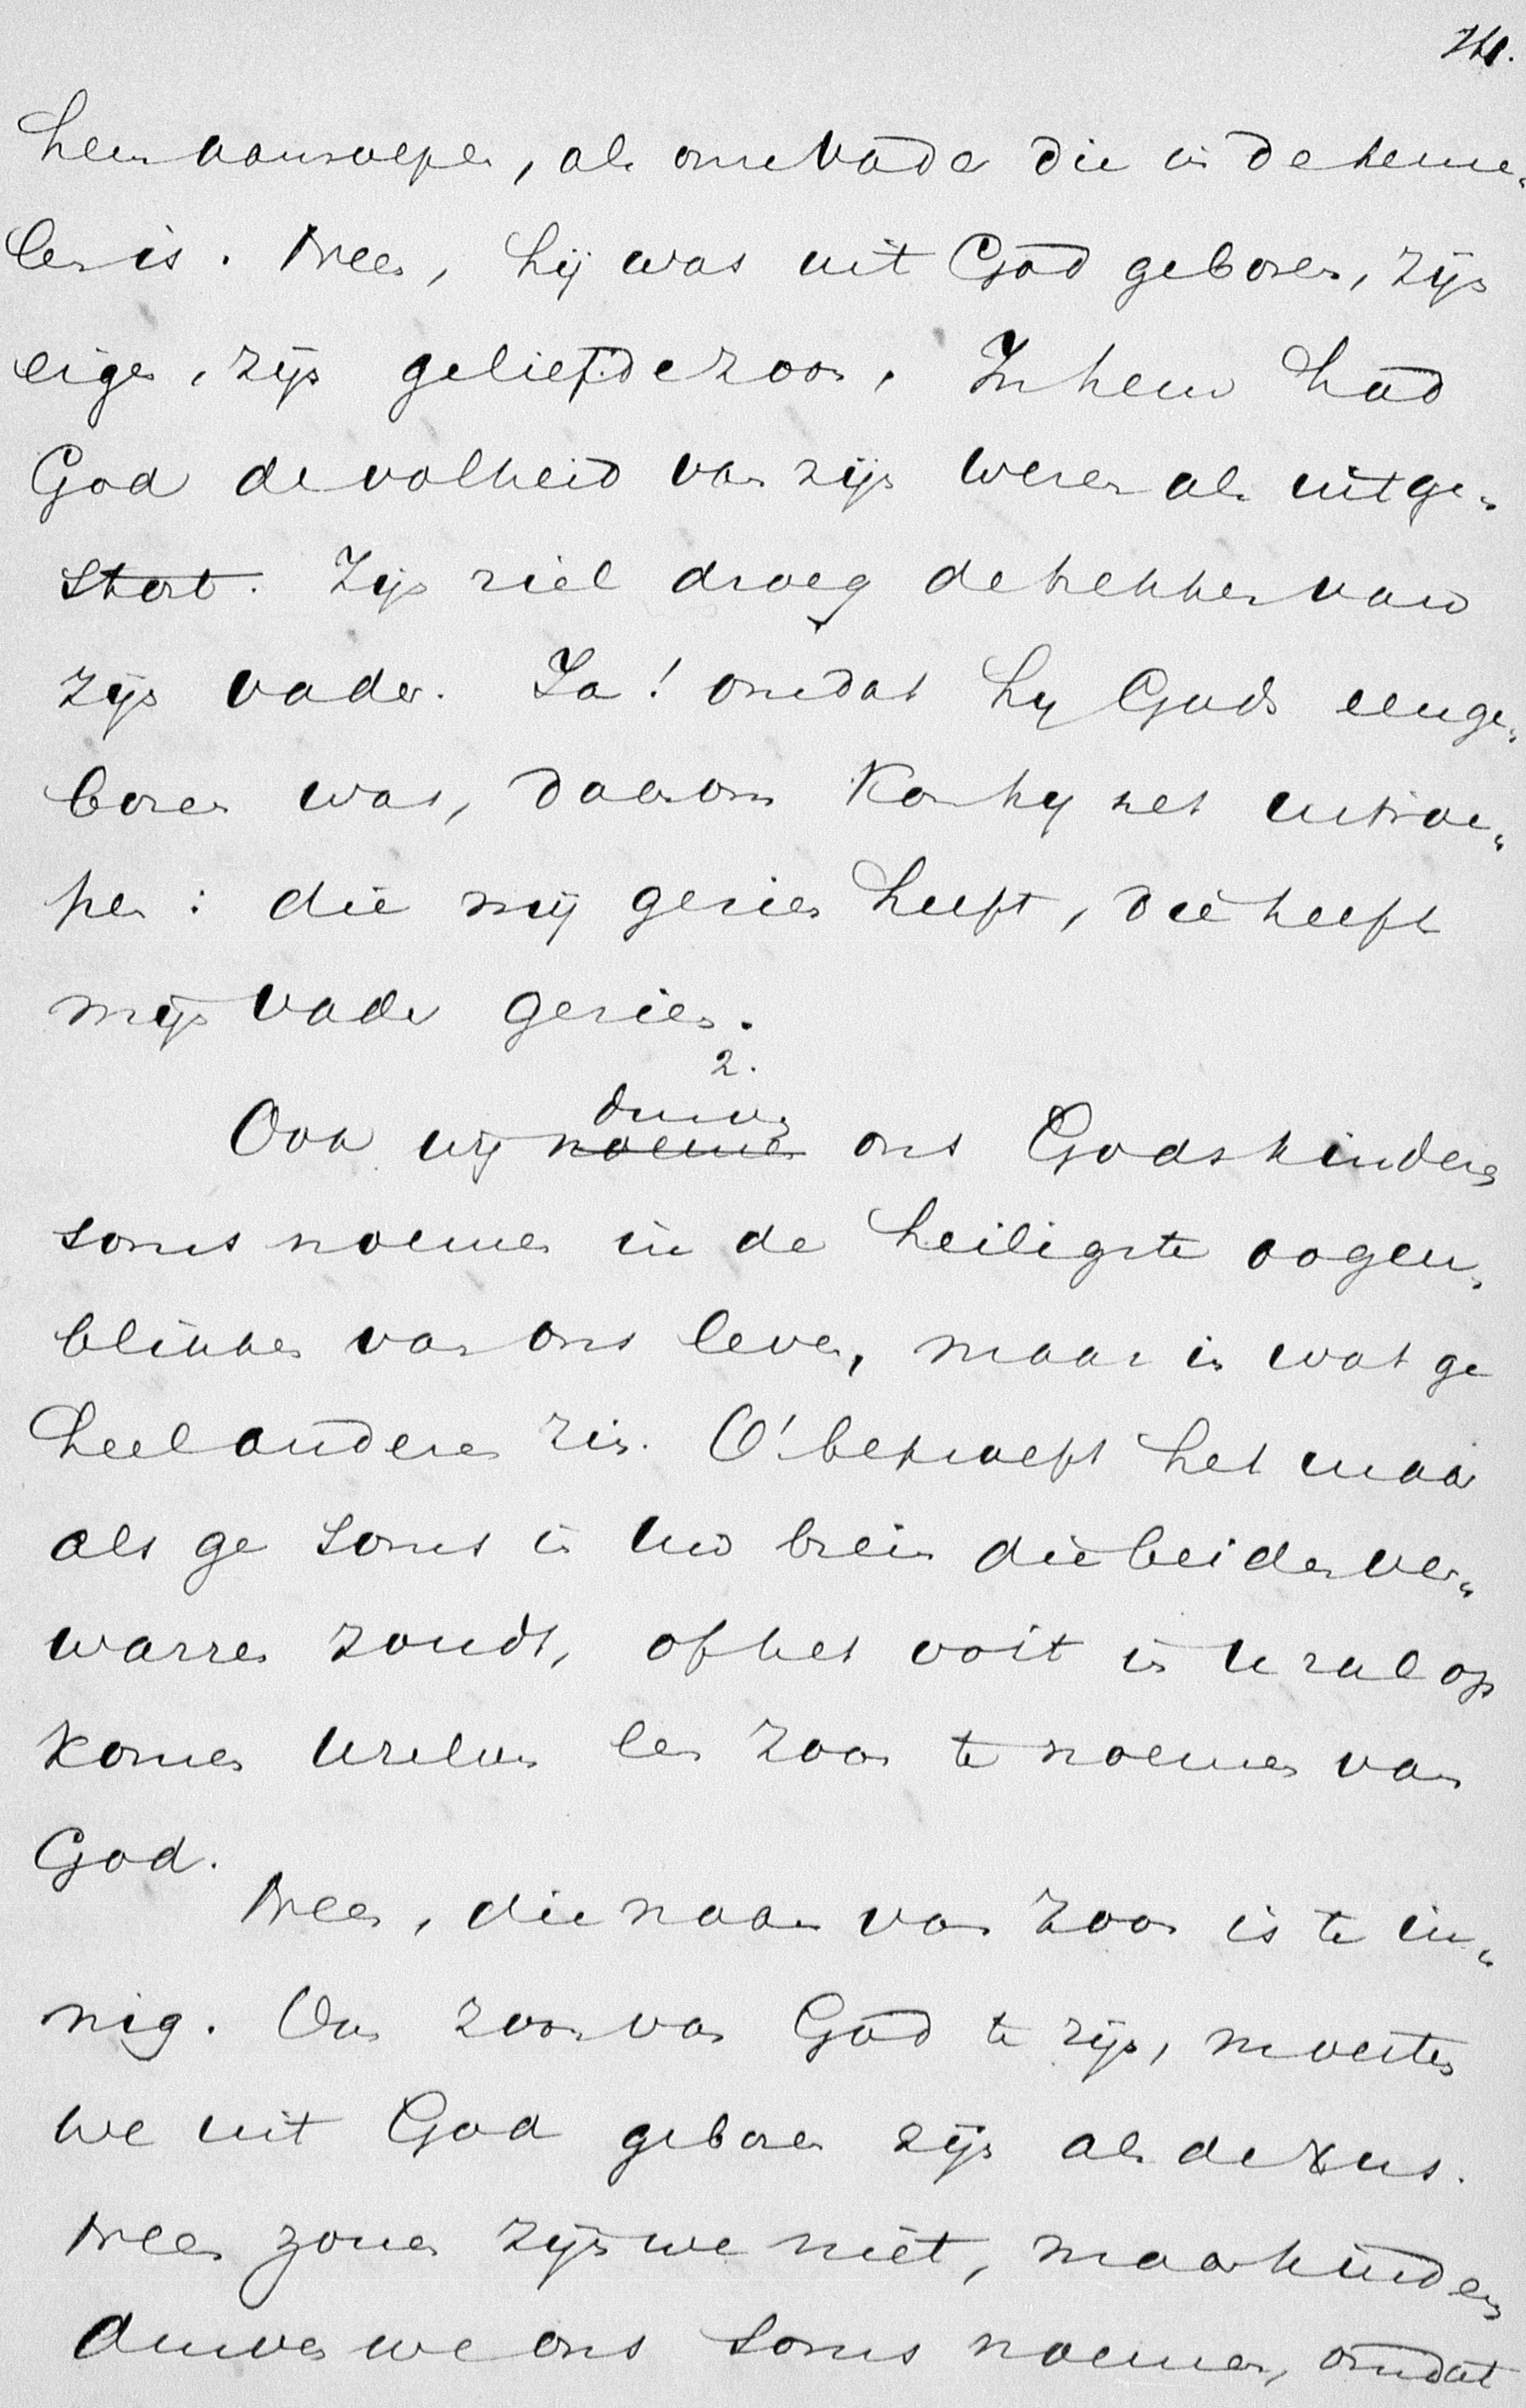 hem aanroepen, als onze Vader die in de heme„
len is. Neen, hij was uit God geboren, zijn
eigen, zijn geliefde zoon. In hem had
God de volheid van zijn wezen als uitge„
stort. Zijn ziel droeg de trekken van
zijn vader. Ja! omdat hy Gods eenge„
boren was, daarom kon hy het uitroe„
pen: die mij gezien heeft, die heeft
mijn Vader gezien.
2.
durven
Ook wij noemen ons Gods kinderen
soms noemen in de heiligste oogen„
blikken van ons leven, maar in wat ge
heel anderen zin. O! beproeft het maar
als ge soms in uw brein die beiden ver„
warren zoudt, of het ooit in u zal op
komen Uzelven een zoon te noemen van
God.
Neen, die naam van zoon is te in„
nig. Om zoon van God te zijn, moesten
we uit God geboren zijn als Jezus.
Neen zonen zijn we niet, maar kinderen
durven we ons soms noemen, omdat